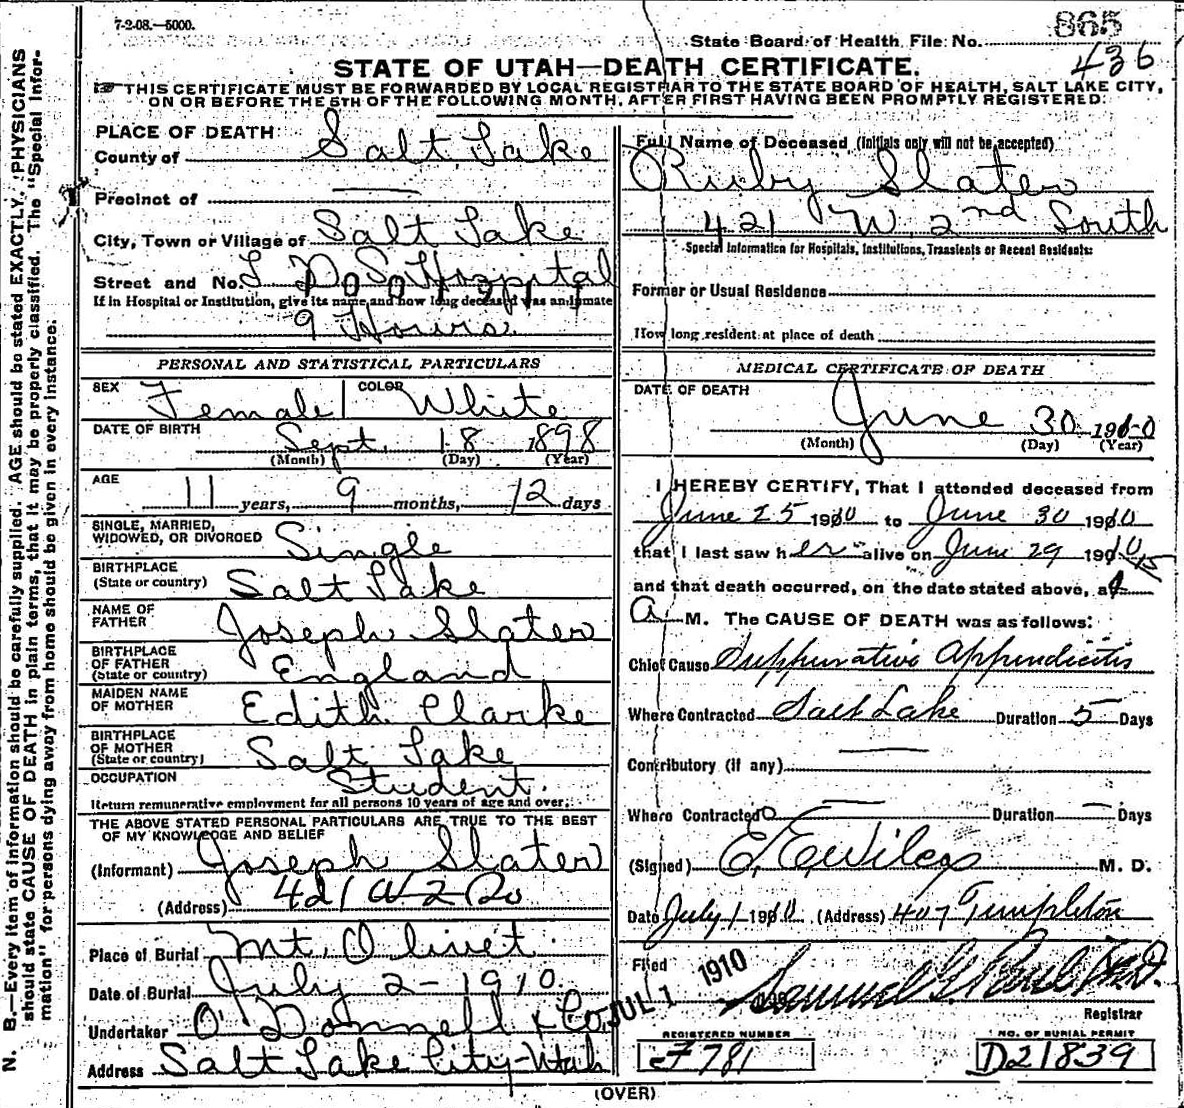 7-2-08.—5000.
State Board of Health File No. 865
436
STATE OF UTAH—DEATH CERTIFICATE.
THIS CERTIFICATE MUST BE FORWARDED BY LOCAL REGISTRAR TO THE STATE BOARD OF HEALTH, SALT LAKE CITY,
ON OR BEFORE THE 5TH OF THE FOLLOWING MONTH, AFTER FIRST HAVING BEEN PROMPTLY REGISTERED.
N. B.—Every item of information should be carefully supplied. AGE should be stated EXACTLY. PHYSICIANS
should state CAUSE OF DEATH in plain terms, that it may be properly classified. The "Special Infor-
mation" for persons dying away from home should be given in every instance.
PLACE OF DEATH
County of Salt Lake
Precinct of —
City, Town or Village of Salt Lake
Street and No. L D S Hospital
If in Hospital or Institution, give its name, and how long deceased was an inmate
9 Hours
PERSONAL AND STATISTICAL PARTICULARS
SEX Female COLOR White
DATE OF BIRTH Sept. 18 1898
(Month) (Day) (Year)
AGE 11 years, 9 months, 12 days
SINGLE, MARRIED,
WIDOWED, OR DIVORCED Single
BIRTHPLACE
(State or country) Salt Lake
NAME OF
FATHER Joseph Slater
BIRTHPLACE
OF FATHER
(State or country) England
MAIDEN NAME
OF MOTHER Edith Clarke
BIRTHPLACE
OF MOTHER
(State or country) Salt Lake
OCCUPATION Student.
Return remunerative employment for all persons 10 years of age and over.
THE ABOVE STATED PERSONAL PARTICULARS ARE TRUE TO THE BEST
OF MY KNOWLEDGE AND BELIEF
(Informant) Joseph Slater
(Address) 421 W 2 So
Place of Burial Mt. Olivet.
Date of Burial July 2 - 1910
Undertaker O'Donnell & Co.
Address Salt Lake City-Utah
Full Name of Deceased (Initials only will not be accepted)
Ruby Slater
421 W. 2nd South
Special Information for Hospitals, Institutions, Transients or Recent Residents:
Former or Usual Residence
How long resident at place of death
MEDICAL CERTIFICATE OF DEATH
DATE OF DEATH
June 30 1910
(Month) (Day) (Year)
I HEREBY CERTIFY, That I attended deceased from
June 25 1910 to June 30 1910
that I last saw her alive on June 29 1910
and that death occurred, on the date stated above, at
A M. The CAUSE OF DEATH was as follows:
Chief Cause Suppurative Appendicitis
Where Contracted Salt Lake Duration 5 Days
Contributory (if any) —
Where Contracted — Duration — Days
(Signed) E. E. Wilcox M. D.
Date July 1 1910 (Address) 407 Templeton
Filed JUL 1 1910 Samuel G. Paul M.D.
Registrar
REGISTERED NUMBER
F 781
NO. OF BURIAL PERMIT
D21839
(OVER)